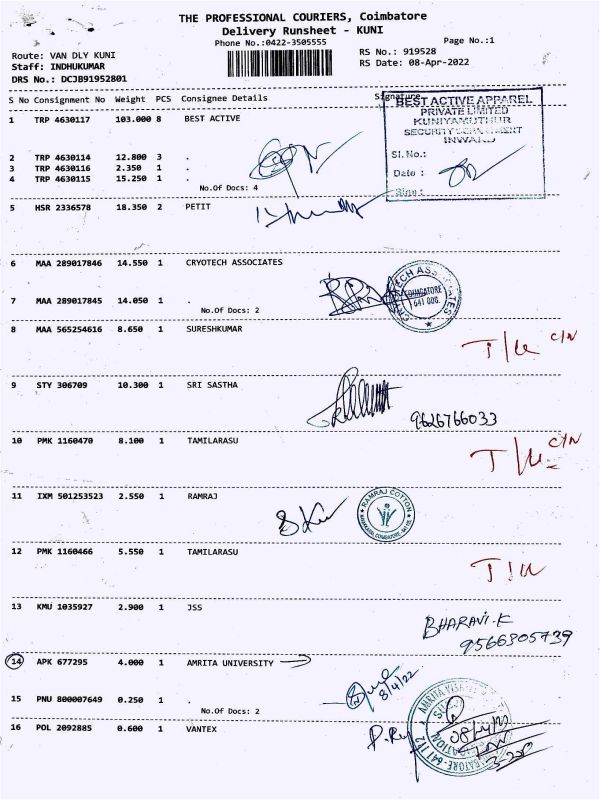 THE PROFESSIONAL COURIERS, Coimbatore
Delivery Runsheet - KUNI
Phone No.:0422-3505555
Page No.:1
Route: VAN DLY KUNI
RS No.: 919528
Staff: INDHUKUMAR
RS Date: 08-Apr-2022
DRS No.: DCJB91952801
S No Consignment No Weight PCS Consignee Details Signature
1 TRP 4630117 103.000 8 BEST ACTIVE
BEST ACTIVE APPAREL
PRIVATE LIMITED
KUNIYAMUTHUR
SECURITY DEPARTMENT
INWARD
Sl. No.:
Date :
Sign :
2 TRP 4630114 12.800 3 .
3 TRP 4630116 2.350 1 .
4 TRP 4630115 15.250 1 .
No.Of Docs: 4
5 HSR 2336578 18.350 2 PETIT
6 MAA 289017846 14.550 1 CRYOTECH ASSOCIATES
CRYOTECH ASSOCIATES
COIMBATORE
641 008.
7 MAA 289017845 14.050 1 .
No.Of Docs: 2
8 MAA 565254616 8.650 1 SURESHKUMAR
T/U C/N
9 STY 306709 10.300 1 SRI SASTHA
9626766033
10 PMK 1160470 8.100 1 TAMILARASU
T/U C/N
11 IXM 501253523 2.550 1 RAMRAJ
RAMRAJ COTTON
12 PMK 1160466 5.550 1 TAMILARASU
T/U
13 KMU 1035927 2.900 1 JSS
BHARAVI.K
9566305739
14 APK 677295 4.000 1 AMRITA UNIVERSITY
8/4/22
15 PNU 800007649 0.250 1 .
No.Of Docs: 2
16 POL 2092885 0.600 1 VANTEX
08/4/22